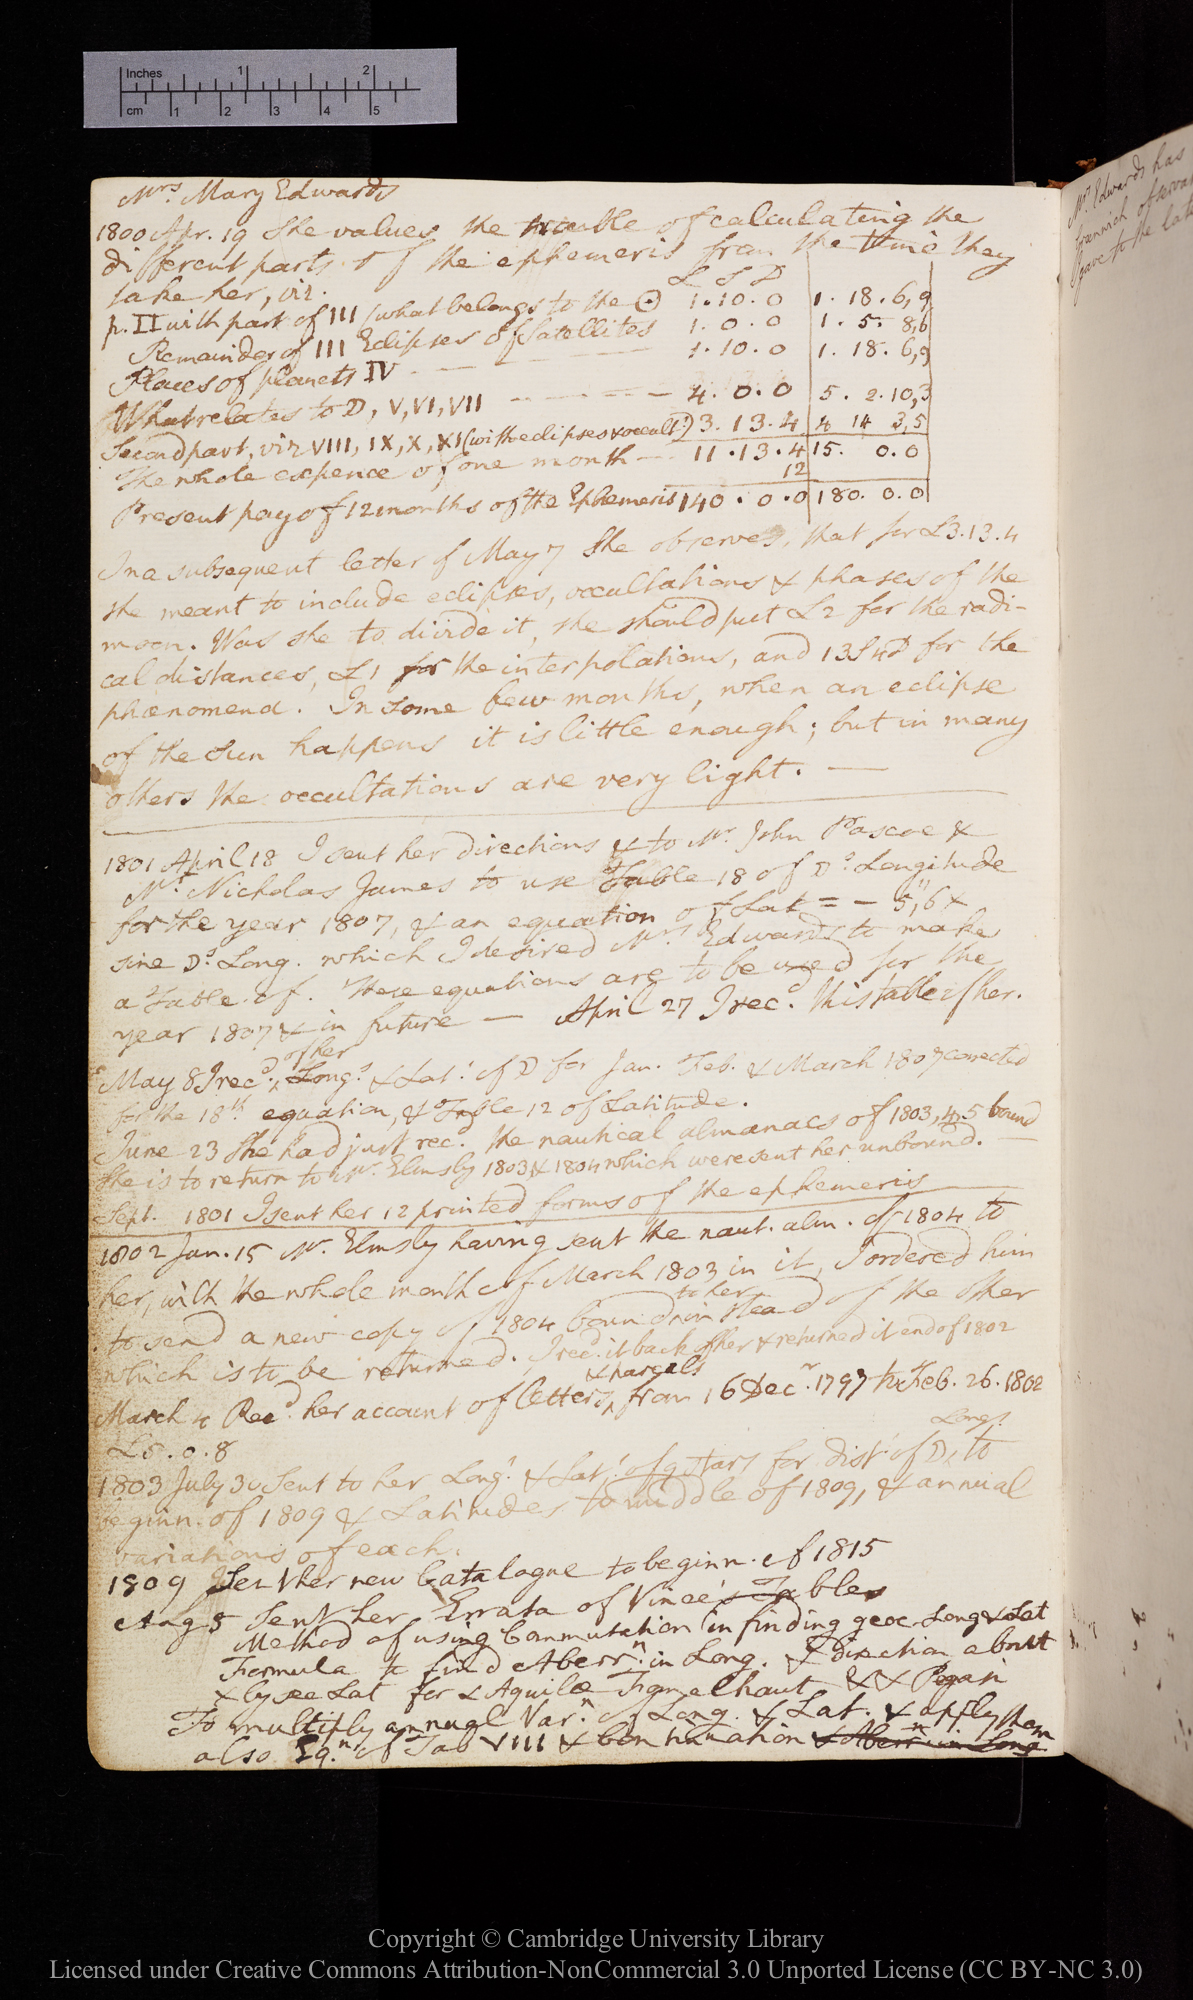 Inches 1 2
cm 1 2 3 4 5
Mrs Mary Edwards
1800 Apr. 19 She values the trouble of calculating the
different parts of the ephemeris from the time they
take her, viz. L S D
p. II with part of III (what belongs to the ☉ 1.10.0 1.18.6,9
Remainder of III Eclipses of Satellites 1.0.0 1.5.8,6
Places of planets IV 1.10.0 1.18.6,9
What relates to D, V, VI, VII 4.0.0 5.2.10,3
Second part, viz VIII, IX, X, XI (with eclipses & occult.) 3.13.4 4 14 3,5
The whole expence of one month 11.13.4 15. 0.0
12
Present pay of 12 months of the Ephemeris 140.0.0 180.0.0
In a subsequent letter of May 7 she observes, that for £3.13.4
she meant to include eclipses, occultations & phases of the
moon. Was she to divide it, she should put £2 for the radi-
cal distances, £1 for the interpolations, and 13S 4D for the
phænomena. In some few months, when an eclipse
of the sun happens it is little enough; but in many
others the occultations are very light. —
1801 April 18 I sent her directions & to Mr. John Pascoe &
Mr. Nicholas James to use Table 18 of D's Longitude
for the year 1807, & an equation of Lat = - 5",6 ×
sine D's Long. which I desired Mrs Edwards to make
a Table of. These equations are to be used for the
year 1807 & in future — April 27 I recd. this table of her.
May 8 I recd. of her Longs. & Lats. of D for Jan. Feb. & March 1807 corrected
for the 18th equation, & Table 12 of Latitude.
June 23 She had just recd. the nautical almanacs of 1803, 4, 5 bound
She is to return to Mr. Elmsly 1803 & 1804 which were sent her unbound. —
Sept. 1801 I sent her 12 printed forms of the ephemeris
1802 Jan. 15 Mr. Elmsly having sent the naut. alm. of 1804 to
her, with the whole month of March 1803 in it, I ordered him
to send a new copy of 1804 bound to her in stead of the other
which is to be returned. I recd. it back of her & returned it end of 1802
March 4 Recd. her account of letters & parcels from 16 Decr. 1797 to Feb. 26. 1802
£5.0.8
1803 July 30 Sent to her Longs. & Lats. of 9 stars for dists. of D, Longs. to
beginn. of 1809 & Latitudes to middle of 1809, & annual
variations of each.
1809 Sent her new Catalogue to beginn. of 1815
Aug 5 Sent her Errata of Vince's Tables
Method of using Commutation in finding geoc Long & Lat
Formula to find Aberrn. in Long. & direction about
& by see Lat for α Aquilæ Fomelhaut & α Pegasi
To multiply annual Varn. of Long. & Lat. & apply them
also Eqn. of Tab VIII & continuation & Aberrn in Long
Mrs. Edwards has
gave to the late
Copyright © Cambridge University Library
Licensed under Creative Commons Attribution-NonCommercial 3.0 Unported License (CC BY-NC 3.0)